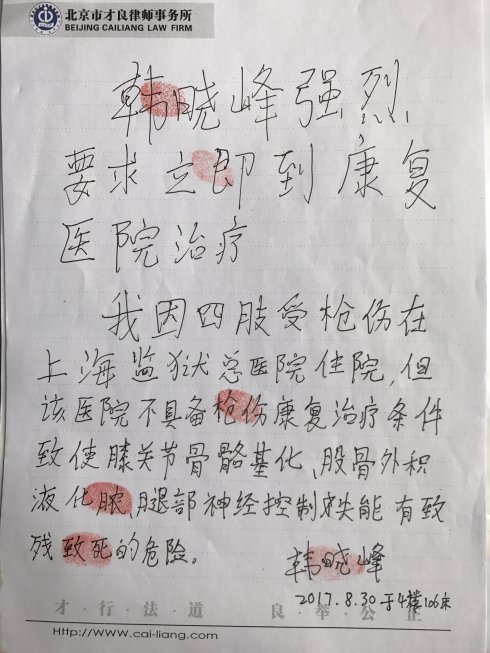 北京市才良律师事务所
BEIJING CAILIANG LAW FIRM
韩晓峰强烈
要求立即到康复
医院治疗
我因四肢受枪伤在
上海监狱总医院住院,但
该医院不具备枪伤康复治疗条件
致使膝关节骨骼基化、股骨外积
液化脓,腿部神经控制失能有致
残致死的危险。
韩晓峰
2017.8.30于4楼106床
才·行·法·道 良·莘·公·正
Http://www.cai-liang.com